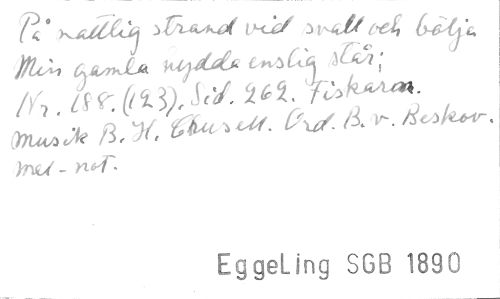 På nattlig strand vid svall och bölja
Min gamla hydda enslig står;
Nr. 188. (123). Sid. 262. Fiskaren.
Musik B. H. Crusell. Ord. B. v. Beskov.
mel-not.
EggeLing SGB 1890